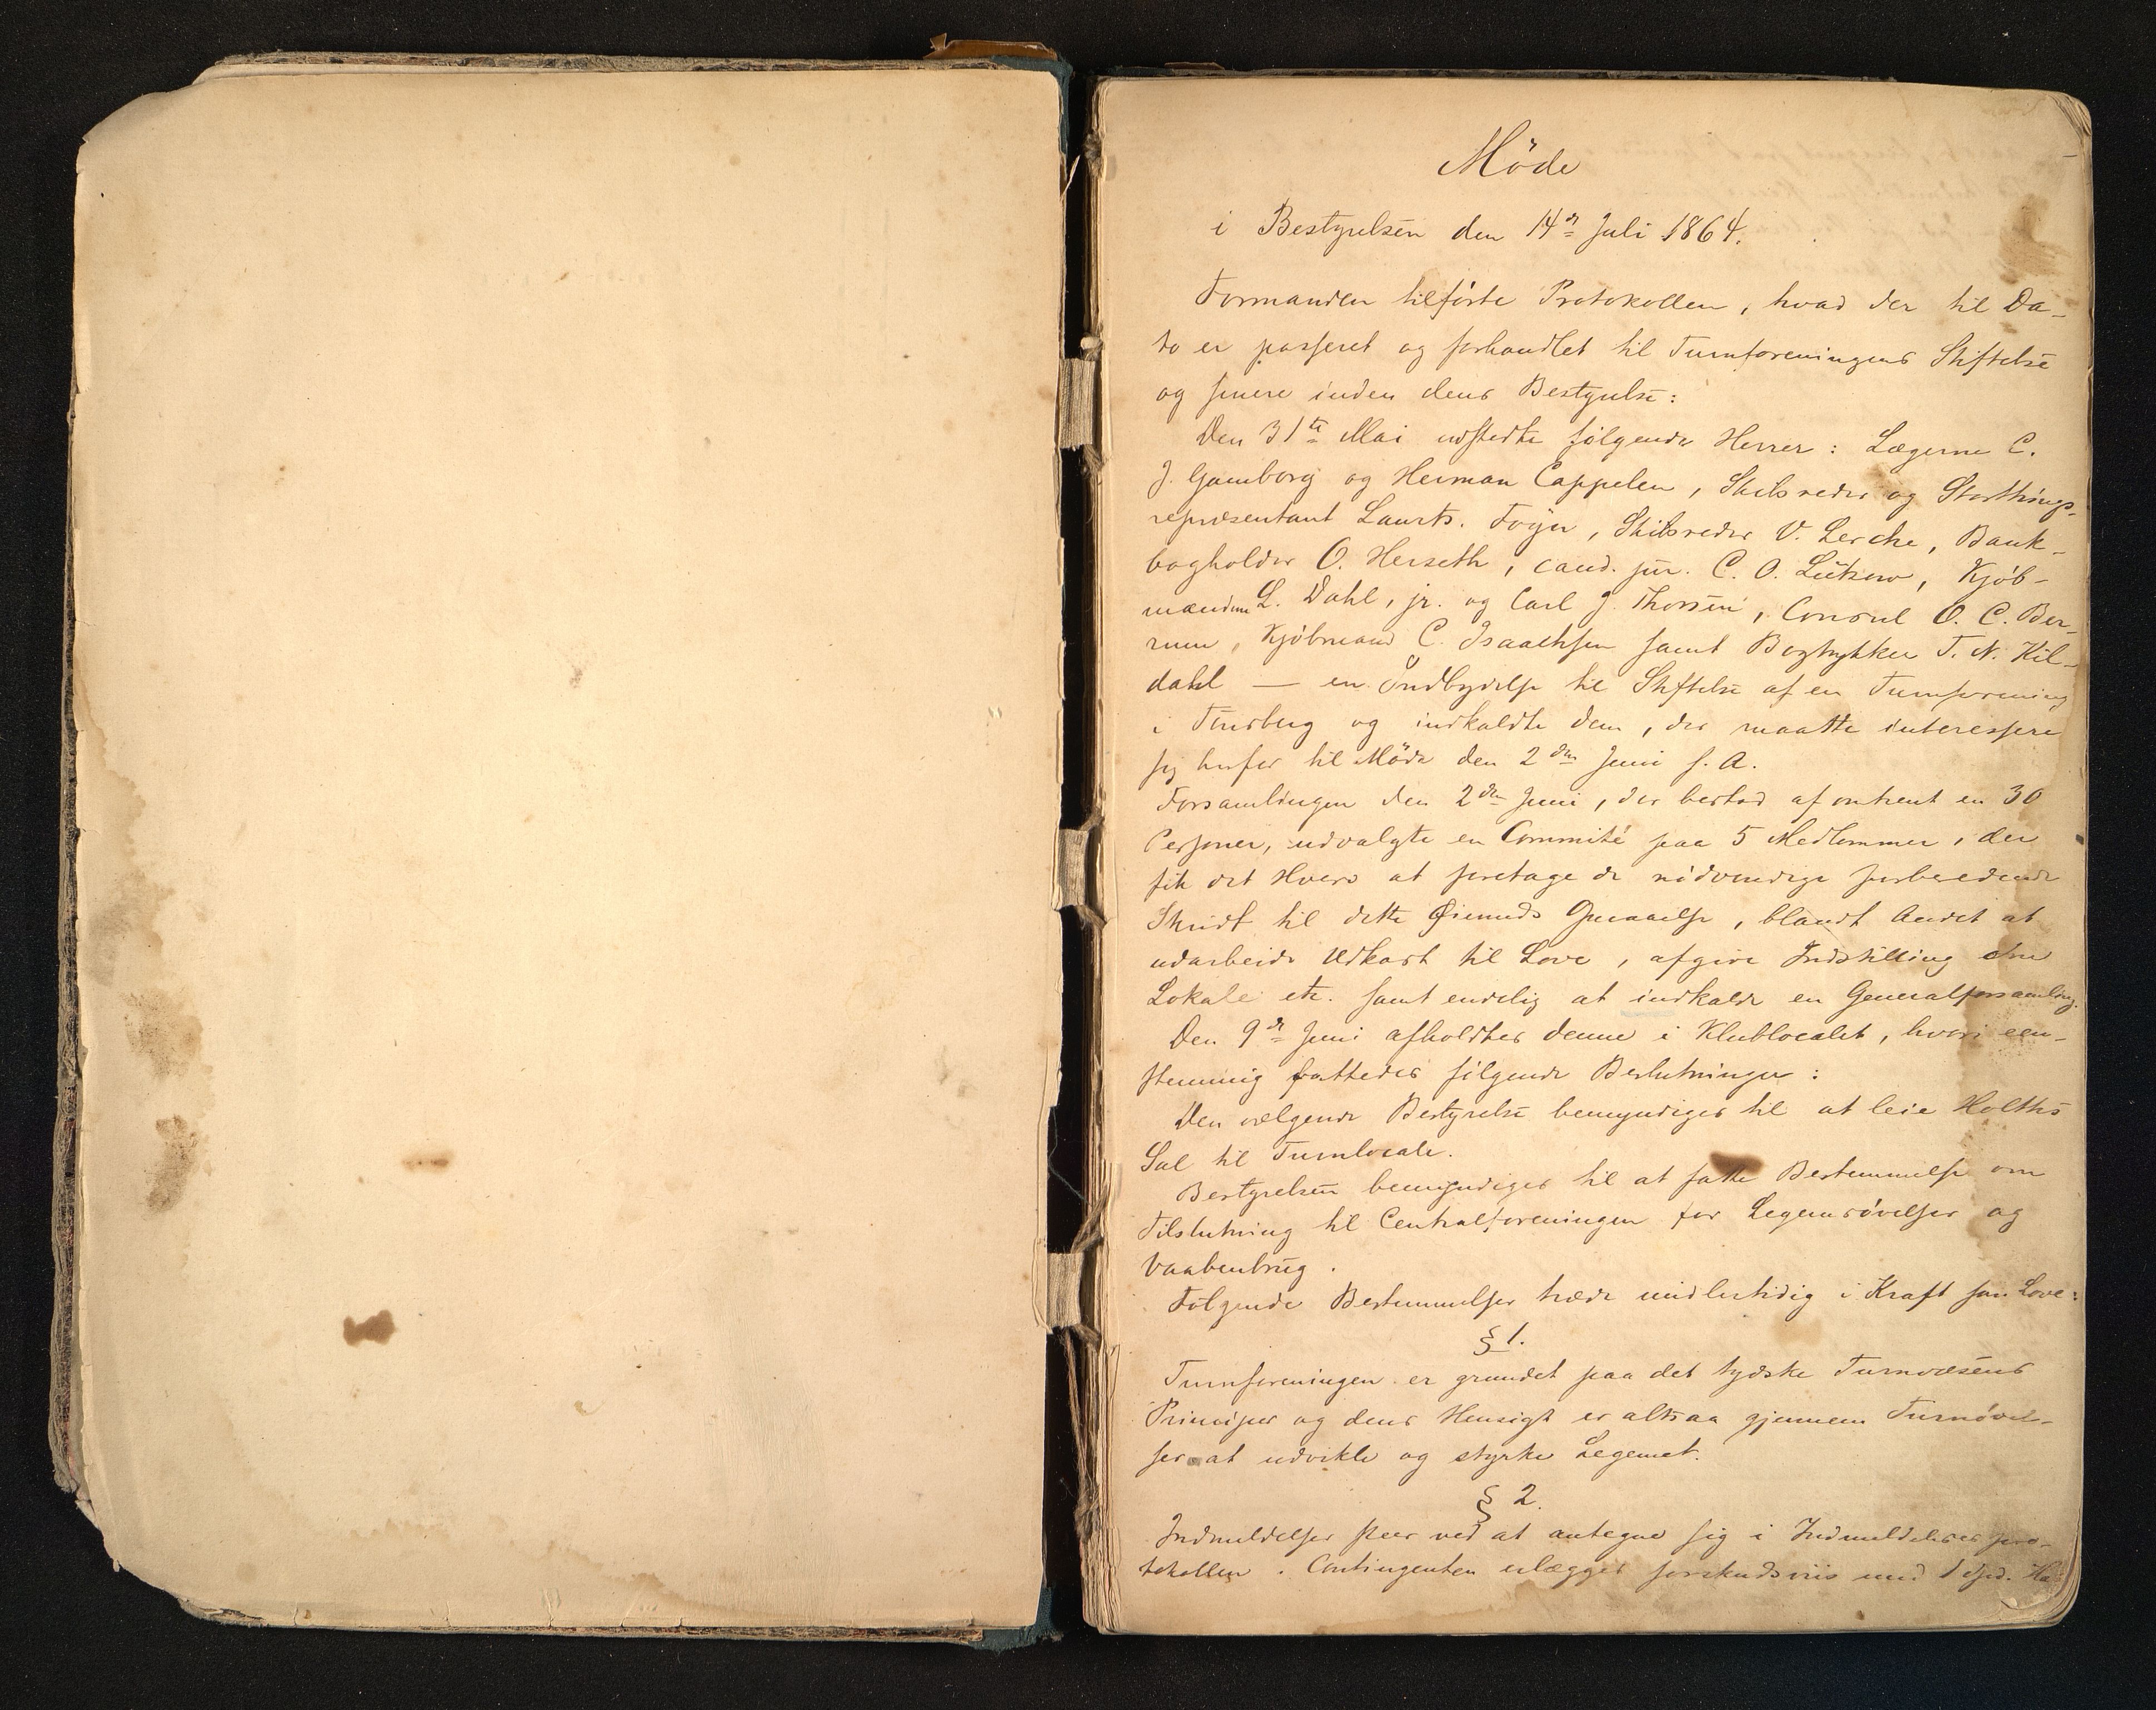 Möde
i Bestyrelsen den 14de Juli 1864.
Formanden tilførte Protokollen, hvad der til Da-
to er passeret og forhandlet til Turnforeningens Stiftelse
og senere inden dens Bestyrelse:
Den 31te Mai udstedte følgende Herrer: Lægerne C.
J. Gamborg og Herman Cappelen, Skibsreder og Storthings-
repræsentant Laurts. Føyn, Skibsreder V. Lerche, Bank-
bogholder O. Herseth, cand. jur. C. O. Lützow, Kjøb-
mændene L. Dahl, jr. og Carl J. Thorsen, Consul O. C. Ber-
rum, Kjøbmand C. Isaachsen samt Bogtrykker T. N. Kil-
dahl — en Indbydelse til Stiftelse af en Turnforening
i Tønsberg og indkaldte dem, der maatte interessere
sig herfor til Möde den 2den Juni s. A.
Forsamlingen den 2den Juni, der bestod af omtrent en 30
Personer, udvalgte en Committé paa 5 Medlemmer, der
fik det Hverv at foretage de nødvendige forberedende
Skridt til dette Øiemeds Opnaaelse, blandt Andet at
udarbeide Udkast til Love, afgive Indstilling om
Lokale etc. samt endelig at indkalde en Generalforsamling.
Den 9de Juni afholdtes denne i Klublocalet, hvori een-
stemmig fattedes følgende Beslutninger:
Den vælgende Bestyrelse bemyndiges til at leie Holths
Sal til Turnlocale.
Bestyrelsen bemyndiges til at fatte Bestemmelse om
Tilslutning til Centralforeningen for Legemsøvelser og
Vaabenbrug.
Følgende Bestemmelser træde midlertidig i Kraft som Love:
§ 1.
Turnforeningen er grundet paa det tydske Turnvæsens
Principer og dens Hensigt er altsaa gjennem Turnøvel-
ser at udvikle og styrke Legemet.
§ 2.
Indmeldelser skeer ved at antegne sig i Indmeldelsespro-
tokollen. Contingenten erlægges forskudsviis med 1 Spd.